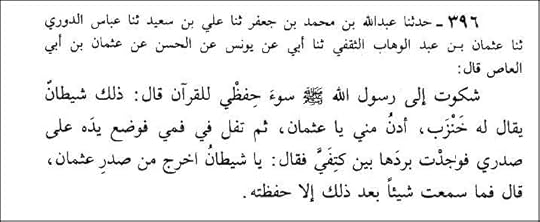 ٣٩٦ - حدثنا عبدالله بن محمد بن جعفر ثنا علي بن سعيد ثنا عباس الدوري
ثنا عثمان بـن عبد الوهاب الثقفي ثنا أبي عن يونس عن الحسن عن عثمان بن أبي
العاص قال:
شكوت إلى رسول الله ﷺ سوءَ حِفظْي للقرآن قال: ذلك شيطانٌ
يقال له خَنْزَب، أدنُ مني يا عثمان، ثم تفل في فمي فوضع يدَه على
صدري فوجَدْت بردَها بين كتِفَيَّ فقال: يا شيطانُ اخرج من صدرِ عثمان،
قال فما سمعت شيئاً بعد ذلك إلا حفظته.